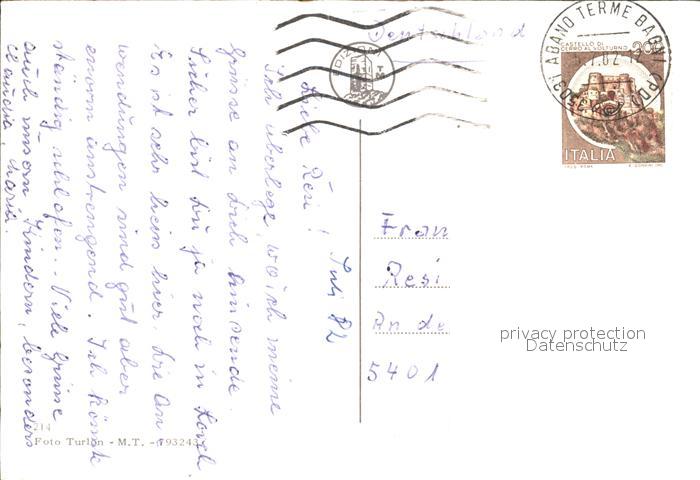 Juli 82
Liebe Resi!
Ich überlege, wo ich meine
Grüsse an Dich hinsende.
Sicher bist Du ja noch in
Es ist sehr heiss hier. Die An-
wendungen sind gut aber
enorm anstrengend. Ich könnte
ständig schlafen. Viele Grüsse
auch Deinen Kindern, besonders
Claudia, Maria.
Deutschland
Frau
Resi
An de
5401
privacy protection
Datenschutz
ABANO TERME BAGNI (PD)
35031
CASTELLO DI
CERRO AL VOLTURNO
200
ITALIA
EDIZIONI
M T
214
Foto Turlon - M.T. - 793243